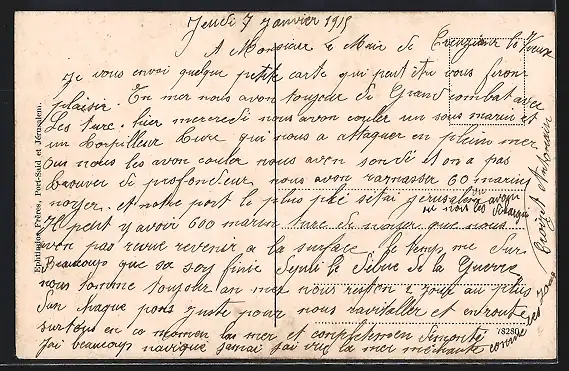 Jeudi 7 Janvier 1915
A Monsieur le Mair de Creuzier le Vieux
Je vous envoi quelque petite carte qui peut être vous feront
plaisir. En mer nous avon toujour de Grand combat avec
Les turc. hier mercredi nous avon couler un sous marin et
un torpilleur turc qui nous a attaquer en plein mer
Oui nous les avon couler nous aven sondé et on a pas
trouver de profondeur nous avon ramasser 60 marins
noyer. et notre port le plus pré
Il peut y avoir 600 marin turc de noyer que nous
aven pas revue revenir a la surface. le temps me dur
Beaucoup que sa soy finie depui le Debue de la Guerre
nous somme toujour an mer nous reston 2 jour au plus
dan chaque pors juste pour nous ravitailler et en route
surtous en ce momen la mer et complètemen Demonté
j'ai beaucoup navigué jamai j'ai vue la mer méchante comme ces jour
Ephtimios Frères, Port-Saïd et Jérusalem.
78280